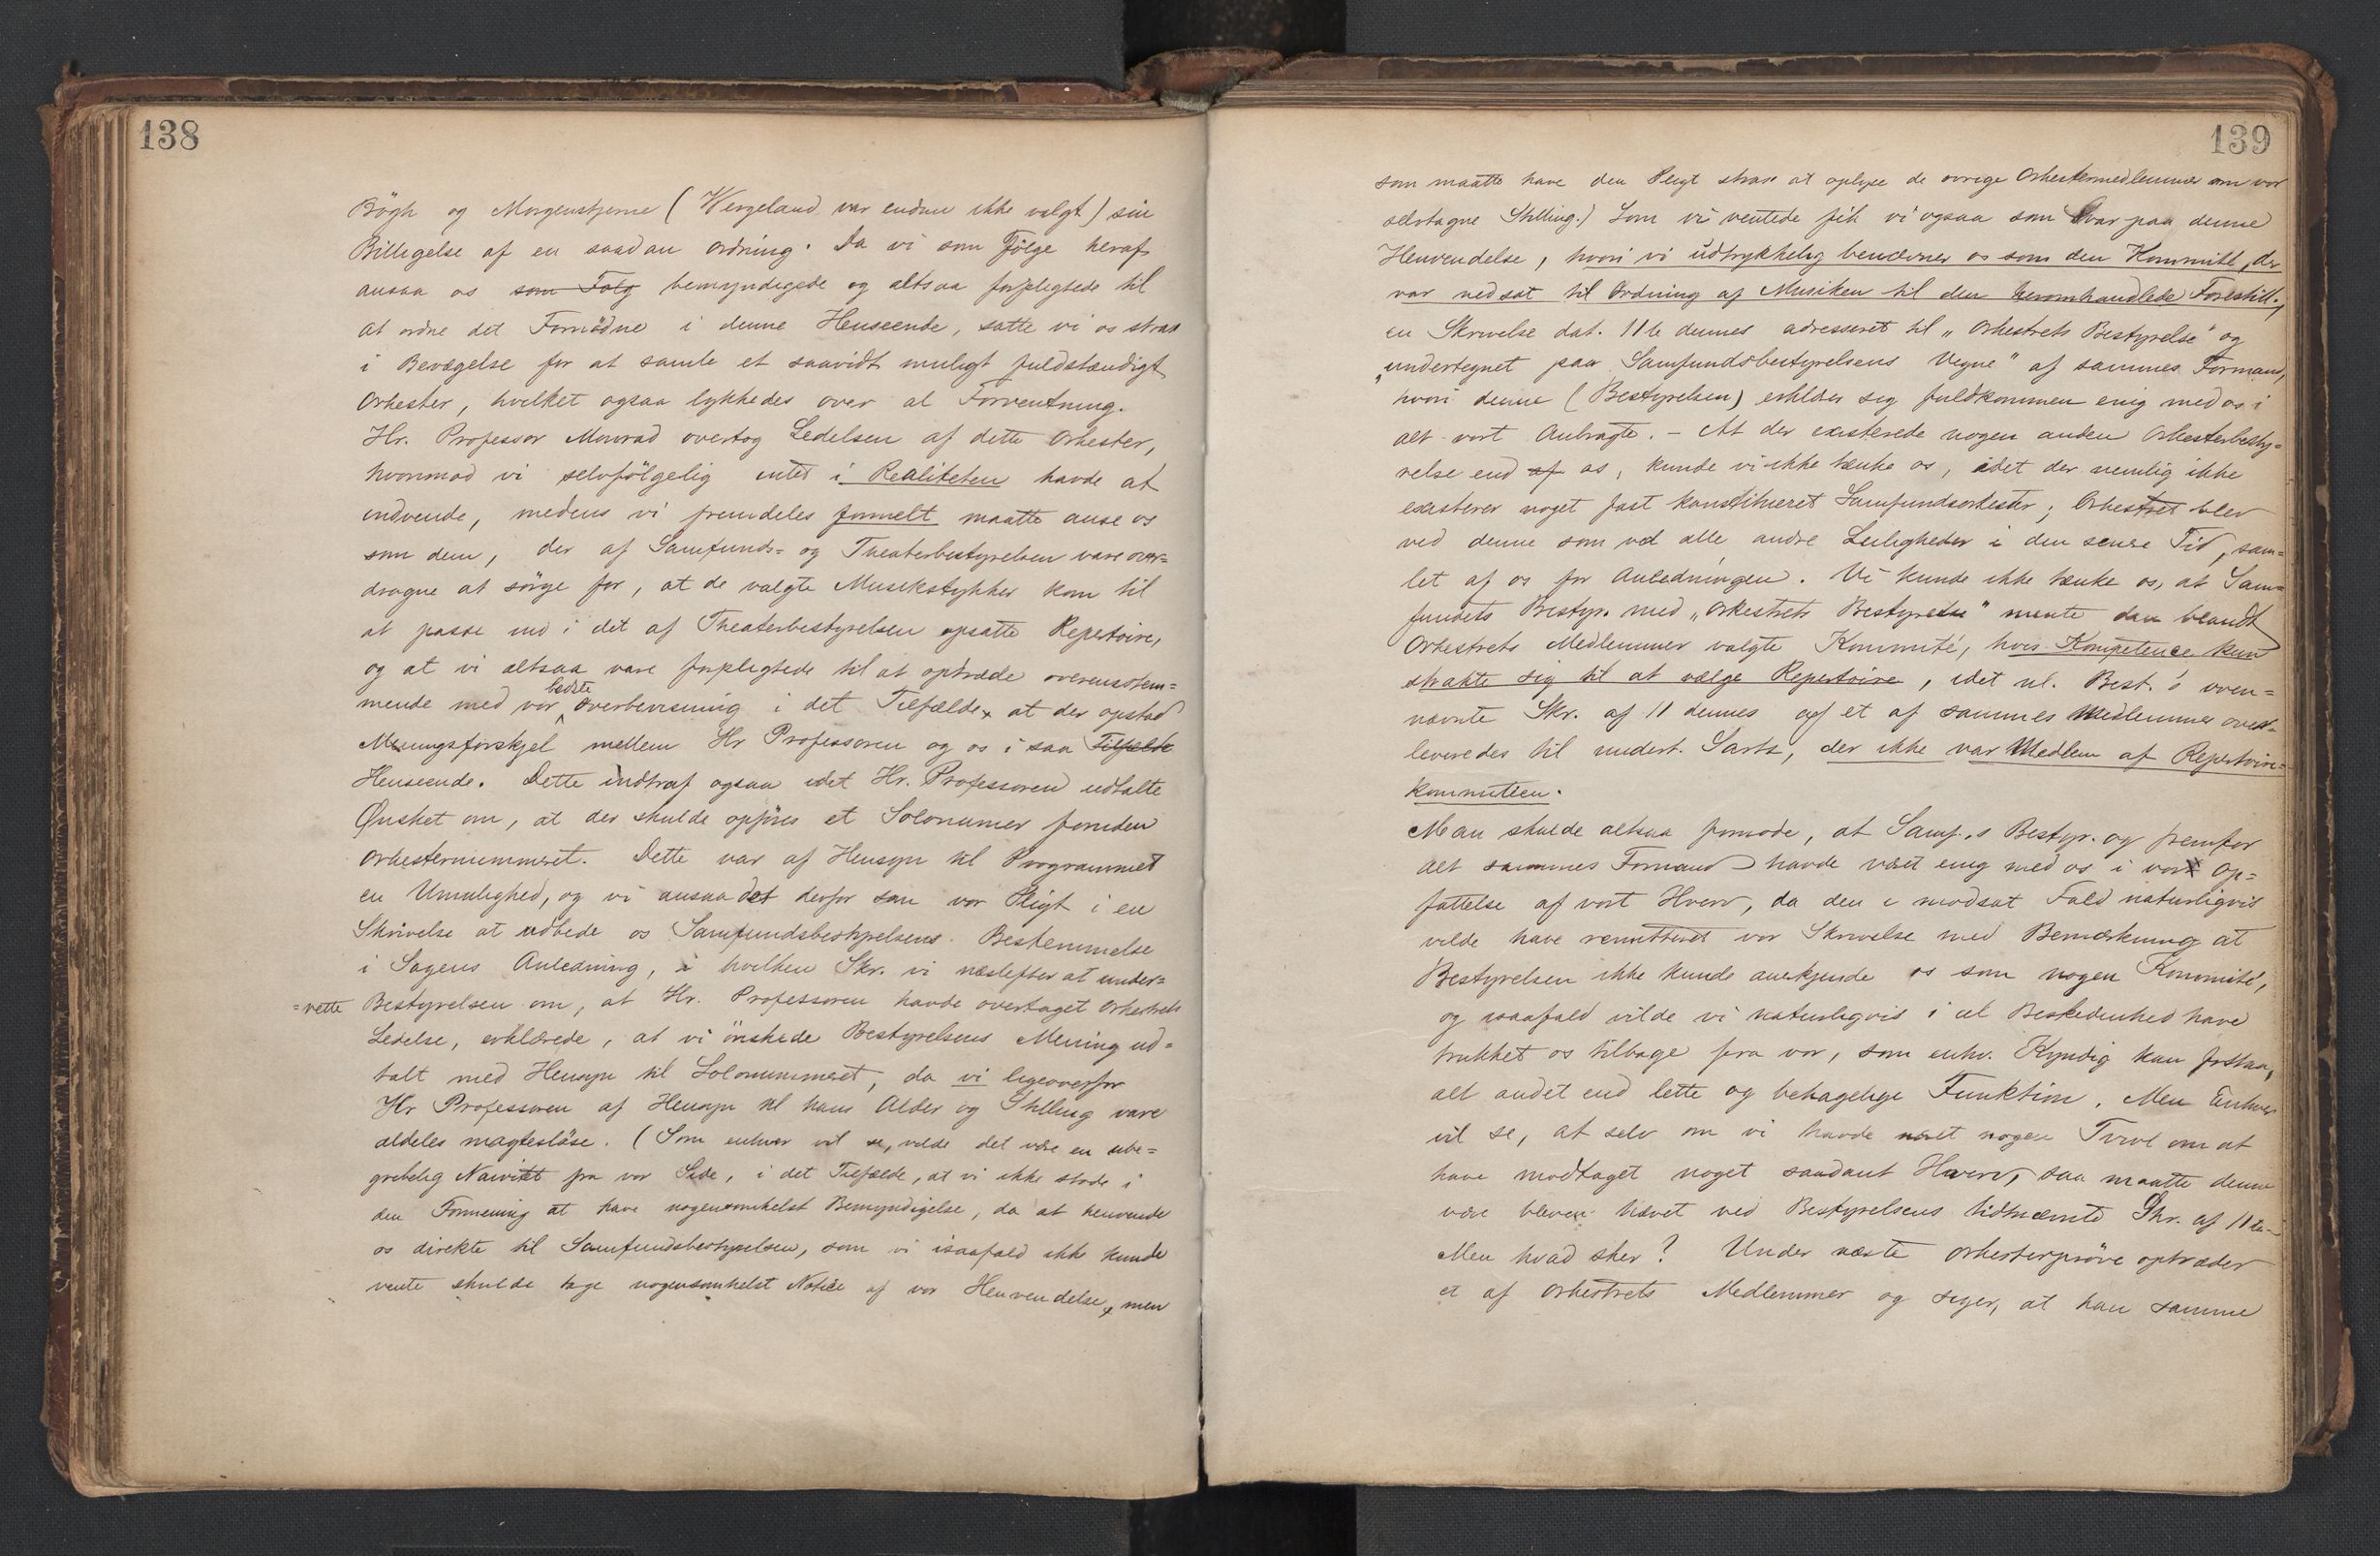 138
Bögh og Morgenstjerne (Wergeland var endnu ikke valgt) sin
Billigelse af en saadan Ordning. Da vi som Fölge heraf
ansaa os som Følg bemyndigede og altsaa forpligtede til
at ordne det Fornödne i denne Henseende, satte vi os strax
i Bevægelse for at samle et saavidt muligt fuldstændigt
Orkester, hvilket ogsaa lykkedes over al Forventning.
Hr. Professor Monrad overtog Ledelsen af dette Orkester,
hvorimod vi selvfölgelig intet i Realiteten havde at
indvende, medens vi fremdeles formelt maatte anse os
som dem, der af Samfunds= og Theaterbestyrelsen vare over=
dragne at sörge for, at de valgte Musikstykker kom til
at passe ind i det af Theaterbestyrelsen opsatte Repertoire,
og at vi altsaa vare forpligtede til at optræde overensstem=
mende med vor bedste Overbevisning i det Tilfælde, at der opstod
Meningsforskjel mellem Hr Professoren og os i saa Tilfælde
Henseende. Dette indtraf ogsaa idet Hr. Professoren udtalte
Ønsket om, at der skulde opföres et Solonumer foruden
Orkesternummeret. Dette var af Hensyn til Programmet
en Umulighed, og vi ansaa det derfor som vor Pligt i en
Skrivelse at udbede os Samfundsbestyrelsens Bestemmelse
i Sagens Anledning, i hvilken Skr. vi næstefter at under=
=rette Bestyrelsen om, at Hr. Professoren havde overtaget Orkestrets
Ledelse, erklærede, at vi önskede Bestyrelsens Mening ud=
talt med Hensyn til Solonummeret, da vi ligeoverfor
Hr Professoren af Hensyn til hans Alder og Stilling vare
aldeles magteslöse. (Som enhver vil se, vilde det være en ube=
gribelig Naivitet fra vor Side, i det Tilfælde, at vi ikke stode i
den Formening at have nogensomhelst Bemyndigelse, da at henvende
os direkte til Samfundsbestyrelsen, som vi isaafald ikke kunde
vente skulde tage nogensomhelst Notice af vor Henvendelse, men
139
som maatte have den Pligt strax at oplyse de övrige Orkestermedlemmer om vor
selvtagne Stilling.) Som vi ventede fik vi ogsaa som Svar paa denne
Henvendelse, hvori vi udtrykkelig benævner os som den Kommitté, der
var nedsat til Ordning af Musiken til den heromhandlede Forestill.,
en Skrivelse dat. 11te dennes adresseret til "Orkestrets Bestyrelse" og
"undertegnet paa Samfundsbestyrelsens Vegne" af sammes Formand,
hvori denne (Bestyrelsen) erklærer sig fuldkommen enig med os i
alt vort Anbragte. – At der existerede nogen anden Orkesterbesty=
relse end af os, kunde vi ikke tænke os, idet der nemlig ikke
existerer noget fast konstitueret Samfundsorkester; Orkestret blev
ved denne som ved alle andre Leiligheder i den senere Tid, sam=
let af os for Anledningen. Vi kunde ikke tænke os, at Sam=
fundets Bestyr. med "Orkestrets Bestyrelse" mente den blandt
Orkestrets Medlemmer valgte Kommité, hvis Kompetence kun
strakte sig til at vælge Repertoire, idet nl. Best.'s oven=
nævnte Skr. af 11 dennes af et af sammes Medlemmer over=
leveredes til undert. Sars, der ikke var Medlem af Repertoire=
kommitteen.
Man skulde altsaa formode, at Samf.s Bestyr. og fremfor
alt sammes Formand havde været enig med os i vor Op=
fattelse af vort Hverv, da den i modsat Fald naturligvis
vilde have remitteret vor Skrivelse med Bemærkning at
Bestyrelsen ikke kunde anerkjende os som nogen Kommité,
og isaafald vilde vi naturligvis i al Beskedenhed have
trukket os tilbage fra vor, som enhv. Kyndig kan forstaa,
alt andet end lette og behagelige Funktion. Men Enhver
vil se, at selv om vi havde næret nogen Tvivl om at
have modtaget noget saadant Hverv, saa maatte denne
være bleven hævet ved Bestyrelsens tidtnævnte Skr. af 11te
Men hvad sker? Under næste Orkesterpröve optræder
et af Orkestrets Medlemmer og siger, at han samme